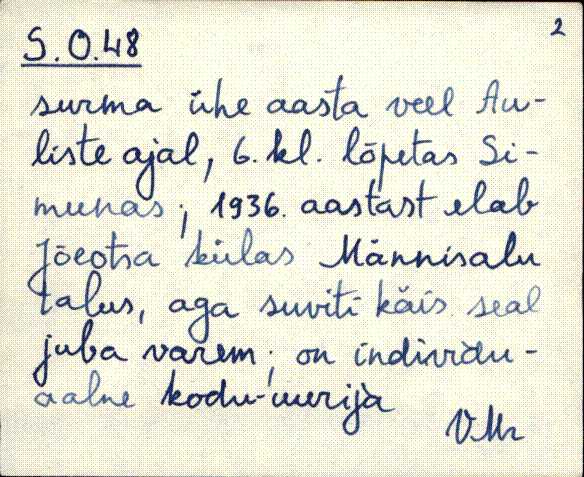 2
S.O.48
surma ühe aasta veel Au-
liste ajal, 6. kl. lõpetas Si-
munas; 1936. aastast elab
Jõeotsa külas Männisalu
talus, aga suviti käis seal
juba varem; on individu-
aalne kodu-uurija
VMr